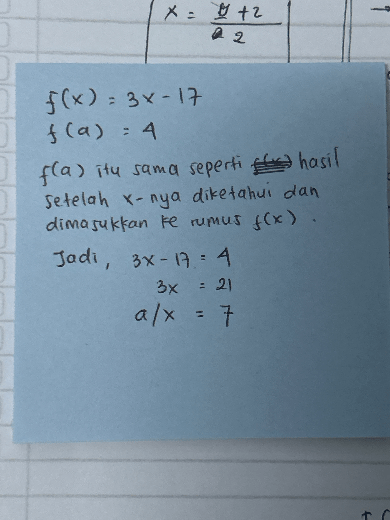 x = y + 2
2 2
f(x) = 3x - 17
f(a) = 4
f(a) itu sama seperti hasil
setelah x-nya diketahui dan
dimasukkan ke rumus f(x).
Jadi, 3x - 17 = 4
3x = 21
a/x = 7